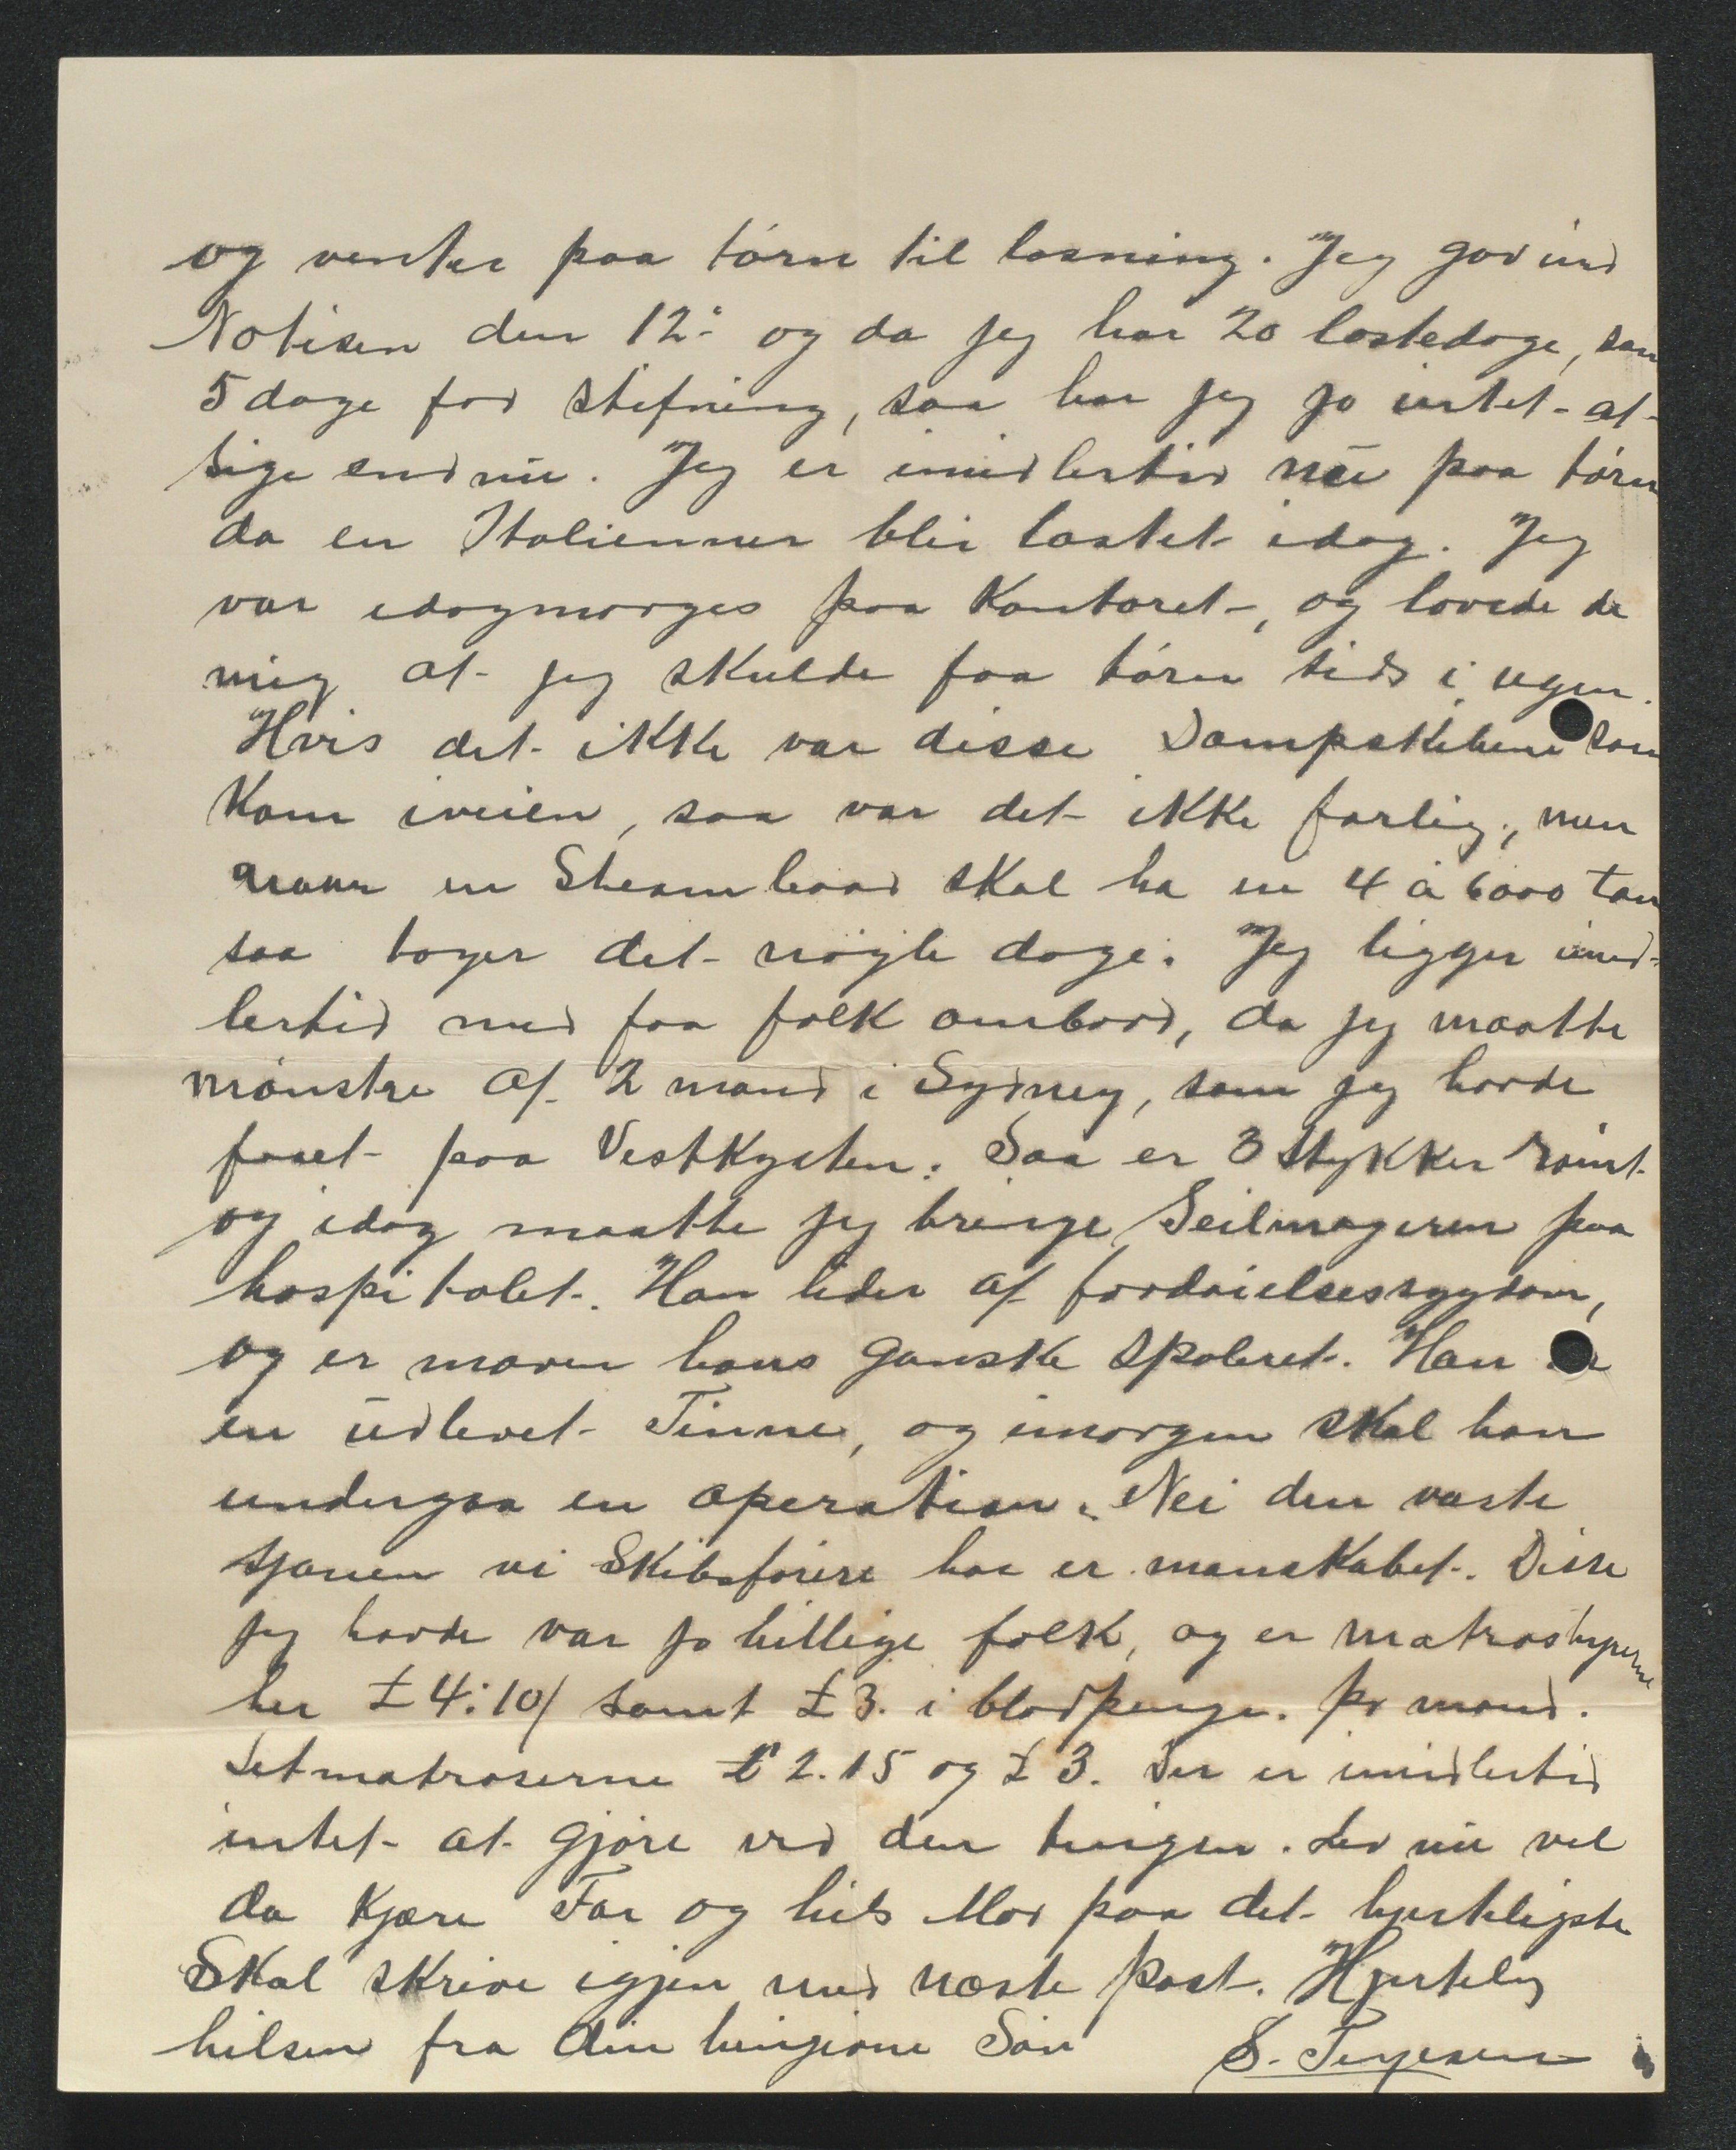 og venter paa törn til lasning. Jeg gav ind
Notisen den 12: og da jeg har 20 lastedage, sam
5 dage for stifning, saa har jeg jo intet at
sige endnu. Jeg er imidlertid nu paa törn
da en Italienner blir lastet idag. Jeg
var idagmorges paa Kontoret, og lovede de
mig at jeg skulde faa törn tids i ugen.
Hvis det ikke var disse Dampskibene som
kom iveien, saa var det ikke farlig, men
naar en Steambaad skal ha en 4 a 6000 tan
saa tager det nögle dage. Jeg ligger imid-
lertid med faa folk ombord, da jeg maatte
mönstre af 2 mand i Sydney, som jeg havde
faaet paa Vestkysten. Saa er 3 stykker römt
og idag maatte jeg bringe Seilmageren paa
hospitalet. Han lider af fordöielsessygdom,
og er maven hans ganske spoleret. Han er
en udlevet Finne, og imorgen skal han
undergaa en operation. Nei den værste
sjauen vi Skibsförere har er mandskabet. Disse
jeg havde var jo billige folk, og er matroshyrerne
her £4:10/ samt £3. i blodpenge. pr mand.
Letmatroserne £2.15 og £3. Der er imidlertid
intet at gjöre ved den tingen. Lev nu vel
da kjære Far og hils Mor paa det hjerteligste
Skal skrive igjen med næste post. Hjertelig
hilsen fra din hengivne Sön S. Terjesen